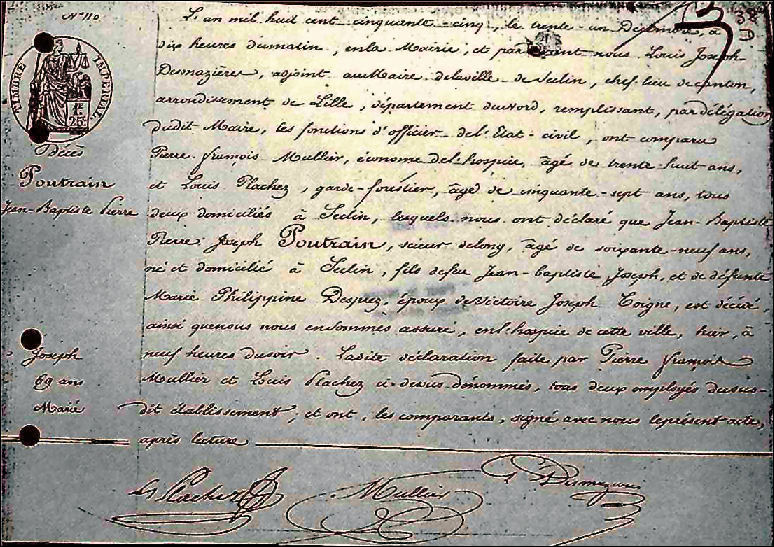 N° 110
TIMBRE IMPERIAL
25c
Décès
Poutrain
Jean-Baptiste Pierre
Joseph
69 ans
Marié
L'an mil huit cent cinquante-cinq, le trente-un Décembre, à
dix heures du matin, en la Mairie, et par devant nous Louis Joseph
Desmazières, adjoint au Maire de la ville de Seclin, chef-lieu de canton,
arrondissement de Lille, département du Nord, remplissant, par délégation
dudit Maire, les fonctions d'officier de l'Etat-civil, ont comparu
Pierre françois Mullier, économe de l'hospice, âgé de trente-huit ans,
et Louis Plachez, garde-forestier, âgé de cinquante-sept ans, tous
deux domiciliés à Seclin, lesquels nous ont déclaré que Jean-Baptiste
Pierre Joseph Poutrain, scieur de long, âgé de soixante-neuf ans,
né et domicilié à Seclin, fils de feu Jean-baptiste Joseph, et de défunte
Marie Philippine Desprez, époux de Victoire Joseph Coigne, est décédé,
ainsi que nous nous en sommes assuré, en l'hospice de cette ville, hier, à
neuf heures du soir. Ladite déclaration faite par Pierre françois
Mullier et Louis Plachez ci-dessus dénommés, tous deux employés du sus-
dit établissement, et ont, les comparants, signé avec nous le présent acte,
après lecture
Ls Plachez Mullier Desmazieres